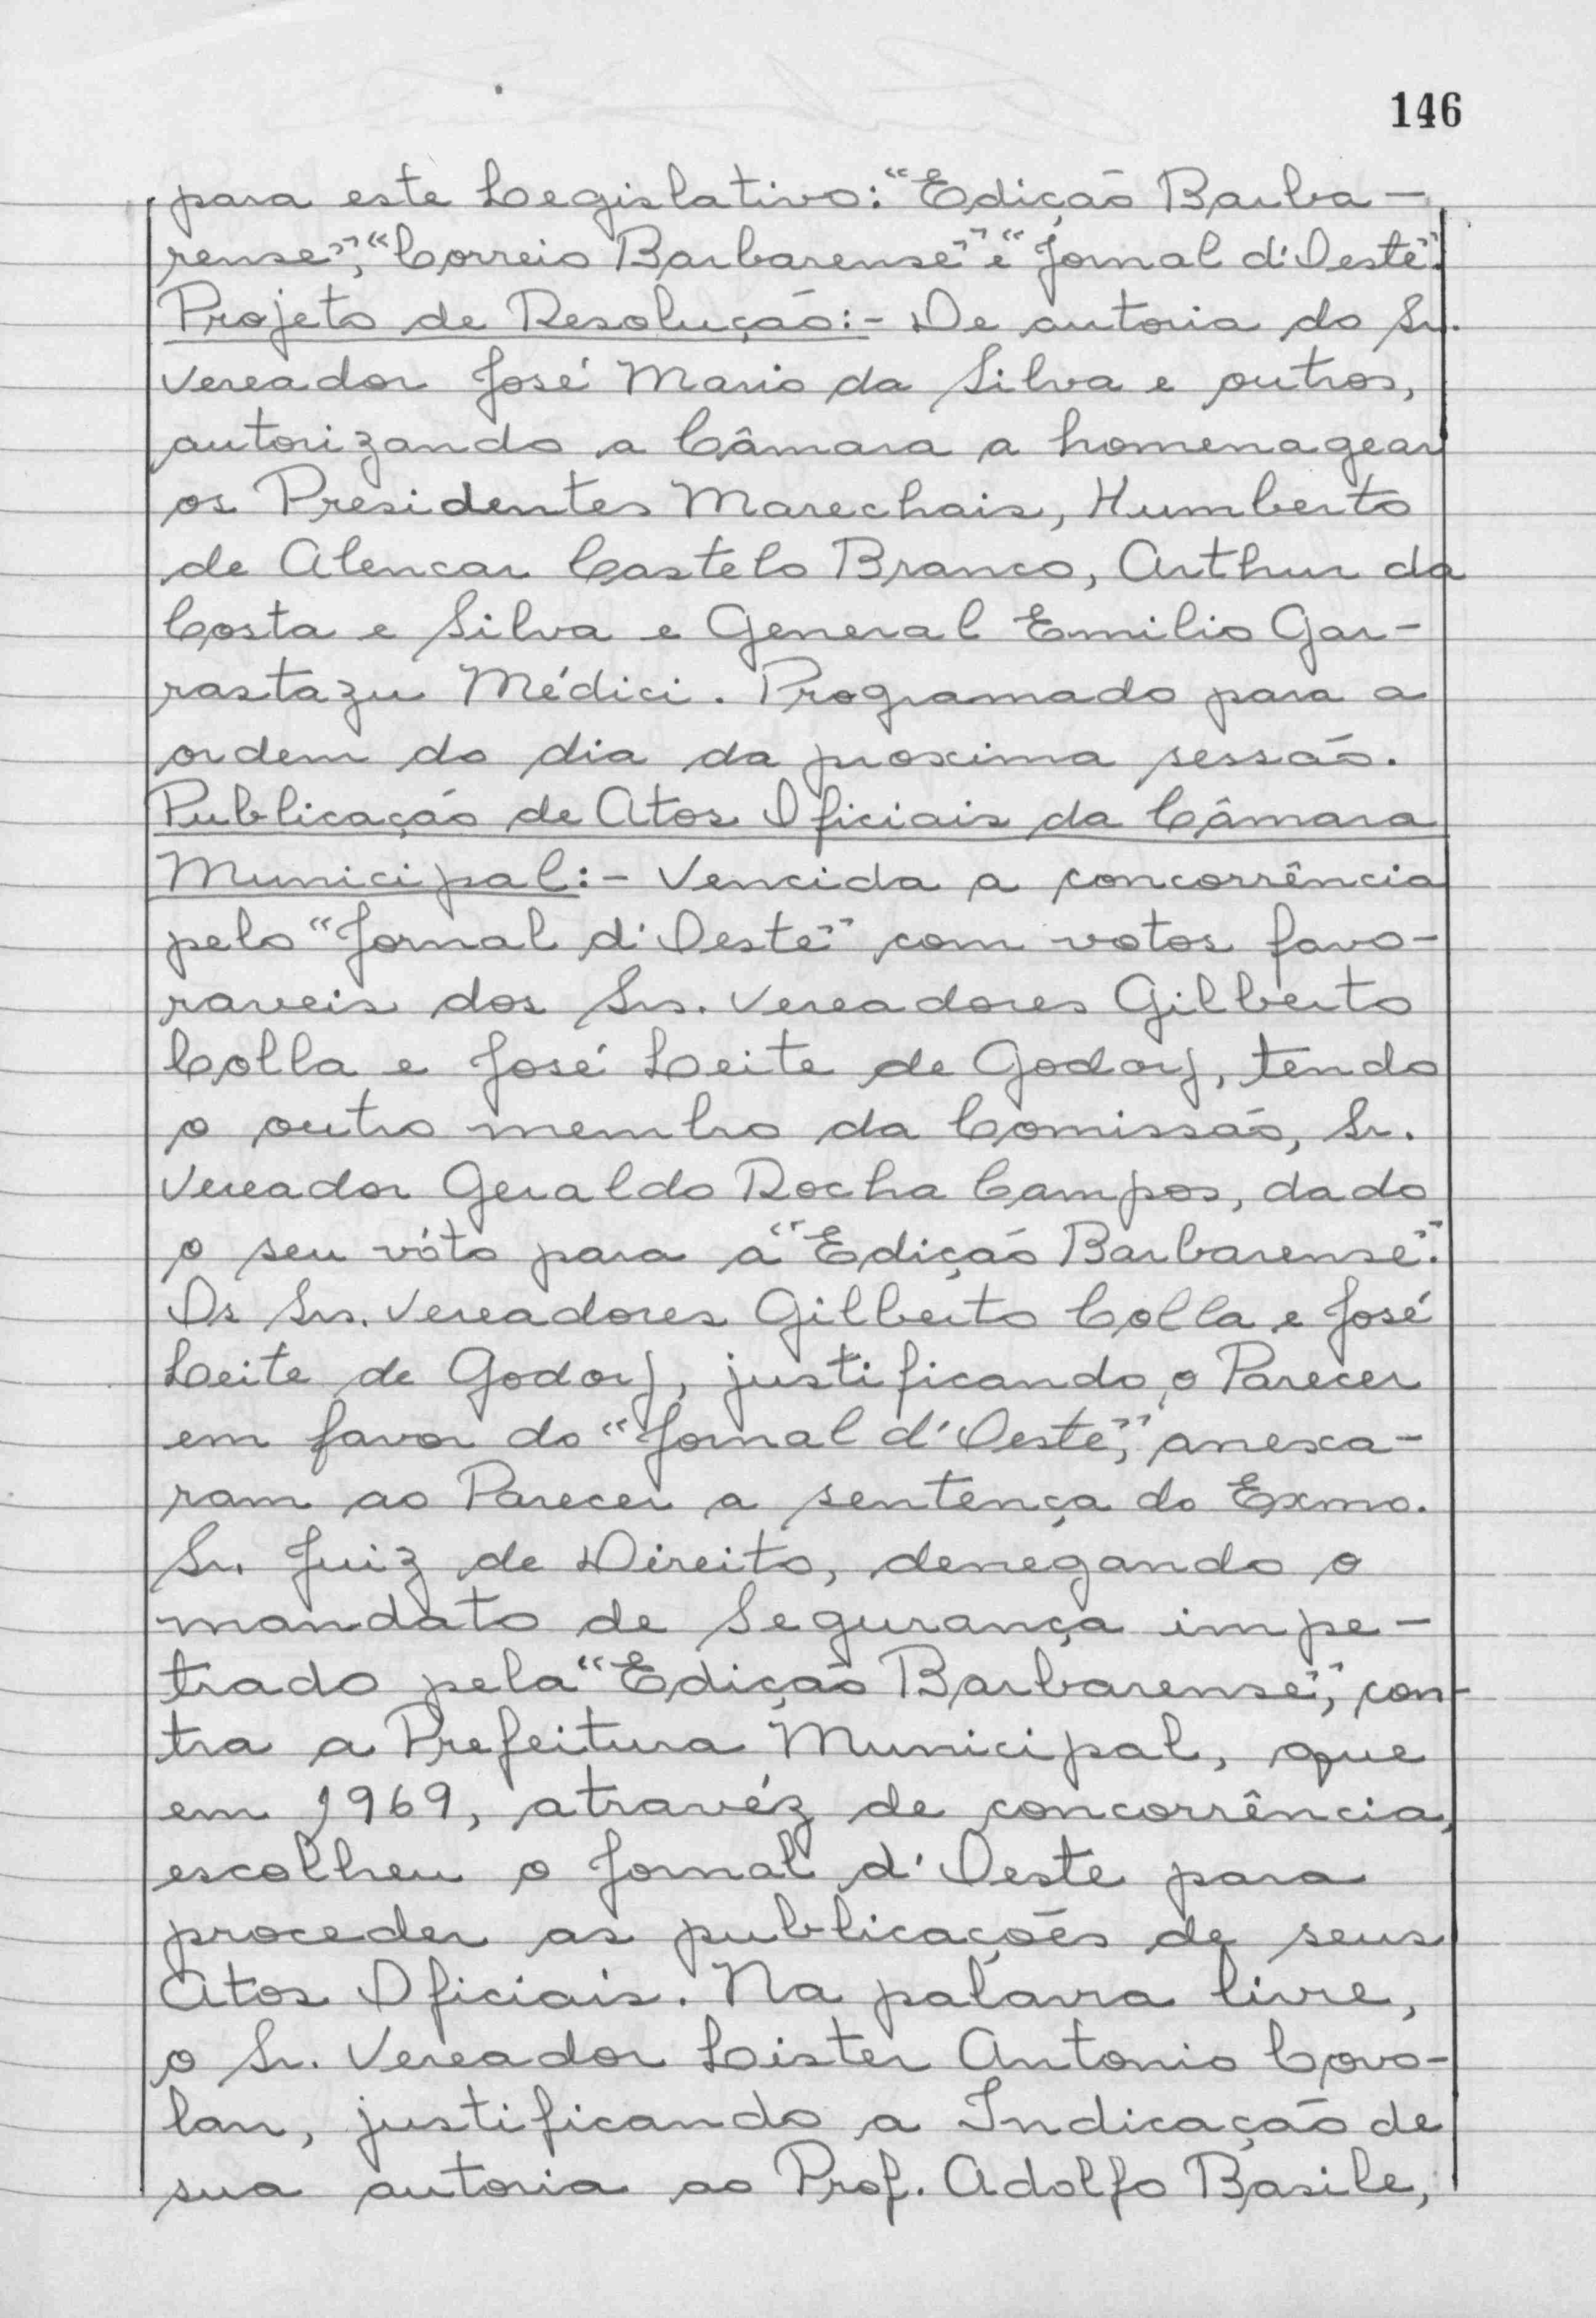 146
para este Legislativo: "Edição Barba-
rense", "Correio Barbarense" e "Jornal d'Oeste".
Projeto de Resolução:- De autoria do Sr.
Vereador José Maria da Silva e outros,
autorizando a Câmara a homenagear
os Presidentes Marechais, Humberto
de Alencar Castelo Branco, Arthur da
Costa e Silva e General Emilio Gar-
rastazu Médici. Programado para a
ordem do dia da proxima sessão.
Publicação de Atos Oficiais da Câmara
Municipal:- Vencida a concorrência
pelo "Jornal d'Oeste" com votos favo-
raveis dos Srs. Vereadores Gilberto
Colla e José Leite de Godoy, tendo
o outro membro da Comissão, Sr.
Vereador Geraldo Rocha Campos, dado
o seu vóto para a "Edição Barbarense".
Os Srs. Vereadores Gilberto Colla e José
Leite de Godoy, justificando o Parecer
em favor do "Jornal d'Oeste", anexa-
ram ao Parecer a sentença do Exmo.
Sr. Juiz de Direito, denegando o
mandato de Segurança impe-
trado pela "Edição Barbarense", con-
tra a Prefeitura Municipal, que
em 1969, atravéz de concorrência,
escolheu o Jornal d'Oeste para
proceder as publicações de seus
Atos Oficiais. Na palavra livre,
o Sr. Vereador Lister Antonio Covo-
lan, justificando a Indicação de
sua autoria ao Prof. Adolfo Basile,